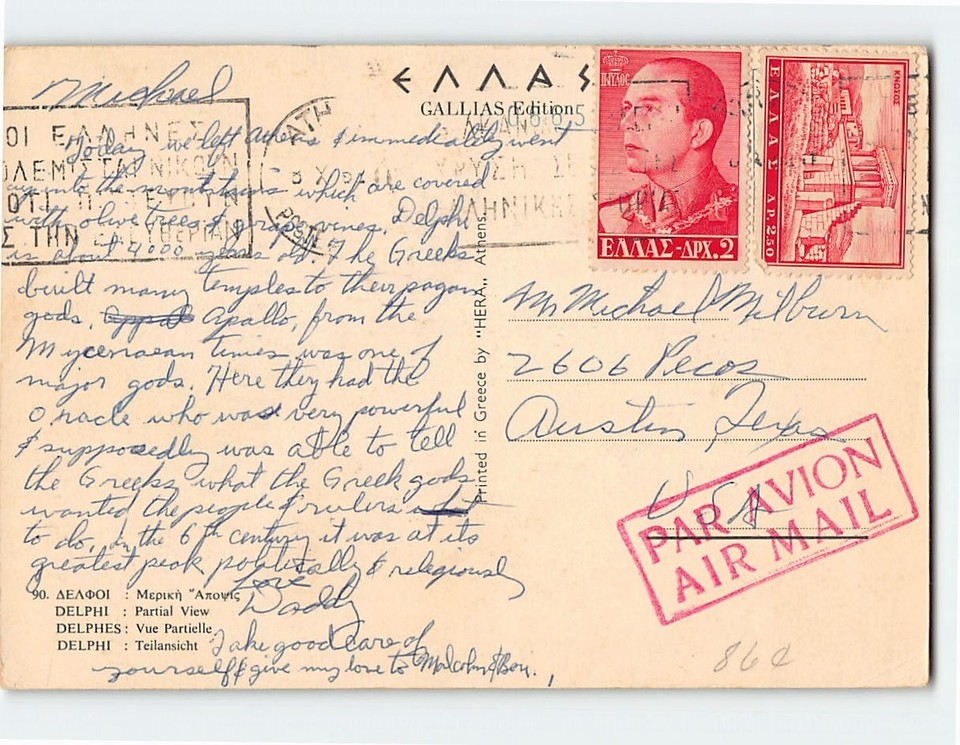 Michael
ΕΛΛΑΣ
GALLIAS Edition
ΟΙ ΕΛΛΗΝΕΣ
Today we left Athens & immediately went
up into the mountains which are covered
with olive trees & grape vines. Delphi
is about 4000 years old. The Greeks
built many temples to their pagan
gods, Apollo, from the
Mycenaean times was one of
major gods. Here they had the
Oracle who was very powerful
& supposedly was able to tell
the Greeks what the Greek gods
wanted the people & rulers
to do. In the 6th century it was at its
greatest peak politically & religiously
Love
Daddy
Take good care of
yourself & give my love to Malcolm & Ben.
90. ΔΕΛΦΟΙ : Μερική Ἄποψις
DELPHI : Partial View
DELPHES : Vue Partielle
DELPHI : Teilansicht
Printed in Greece by "HERA,, Athens.
ΠΑΥΛΟΣ
ΕΛΛΑΣ-ΔΡΧ.2
ΕΛΛΑΣ ΔΡ. 2.50
ΚΝΩΣΟΣ
Mr Michael Milburn
2606 Pecos
Austin, Texas
USA
PAR AVION
AIR MAIL
86¢